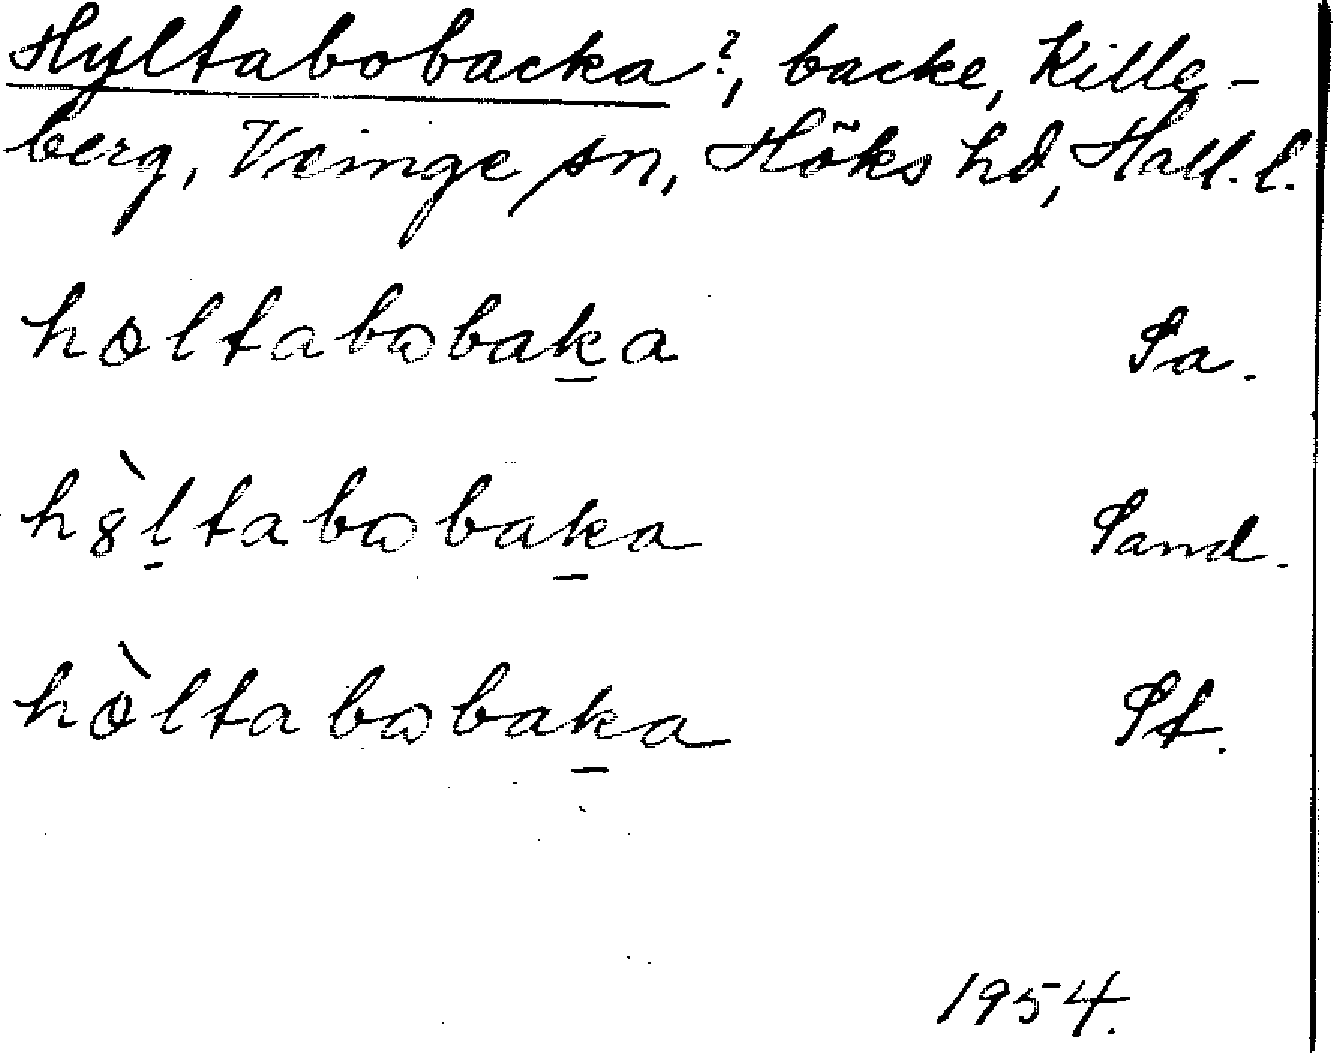 Hyltabobacka?, backe, Kille-
berg, Veinge sn, Höks hd, Hall. l.
høltabωbak̲a Sa.
h8̀l̲tabωbak̲a Sand.
hø̀ltabωbak̲a St.
1954.